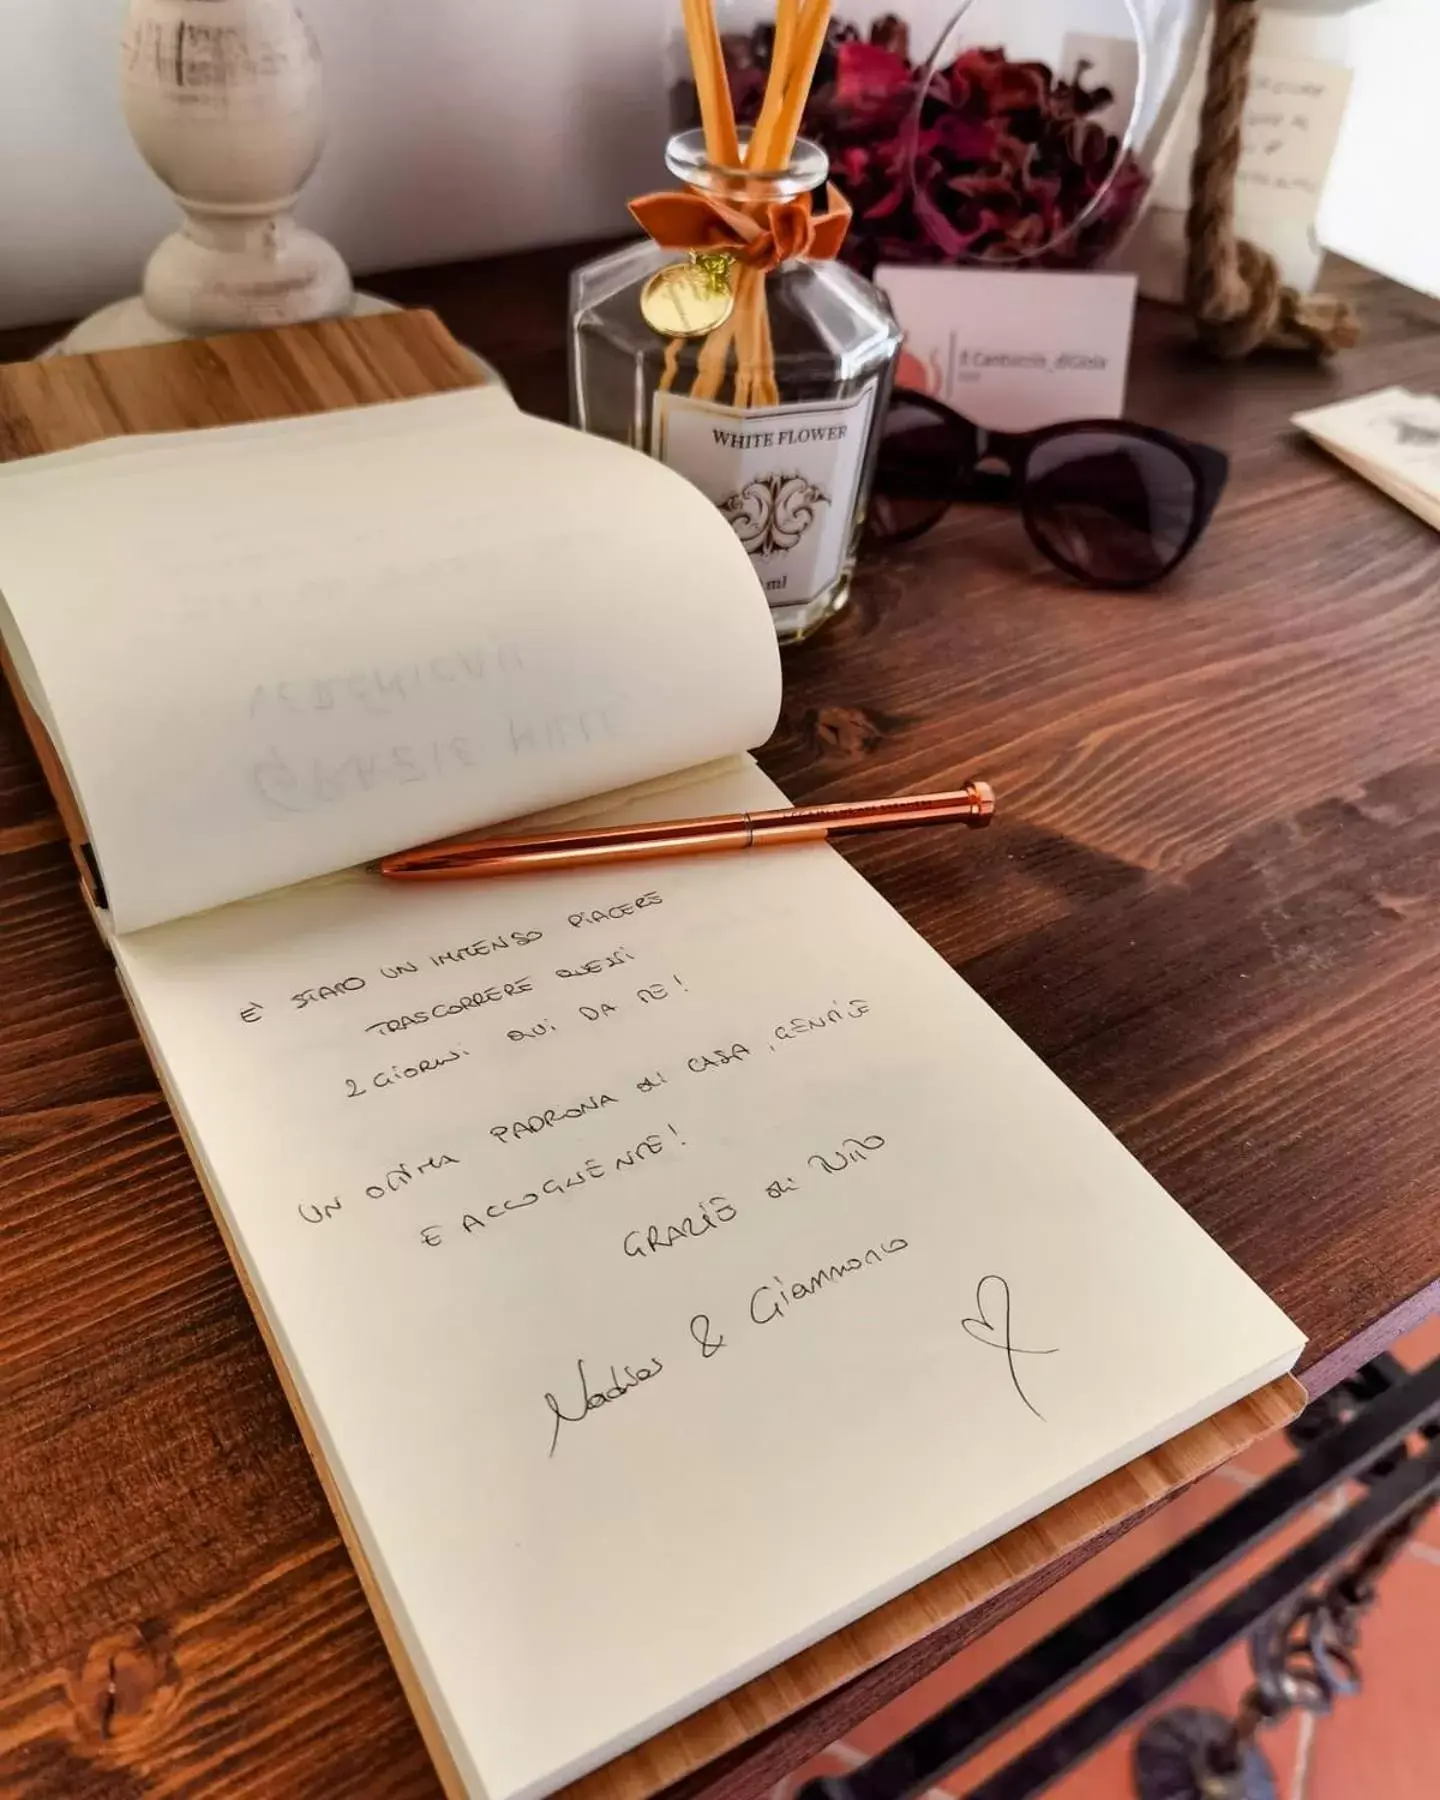 WHITE FLOWER
ml
GRAZIE MILLE
È STATO UN IMMENSO PIACERE
TRASCORRERE QUESTI
2 GIORNI QUI DA TE!
UN OTTIMA PADRONA di CASA, GENTILE
E ACCOGLIENTE!
GRAZIE di TUTTO
& Giannario